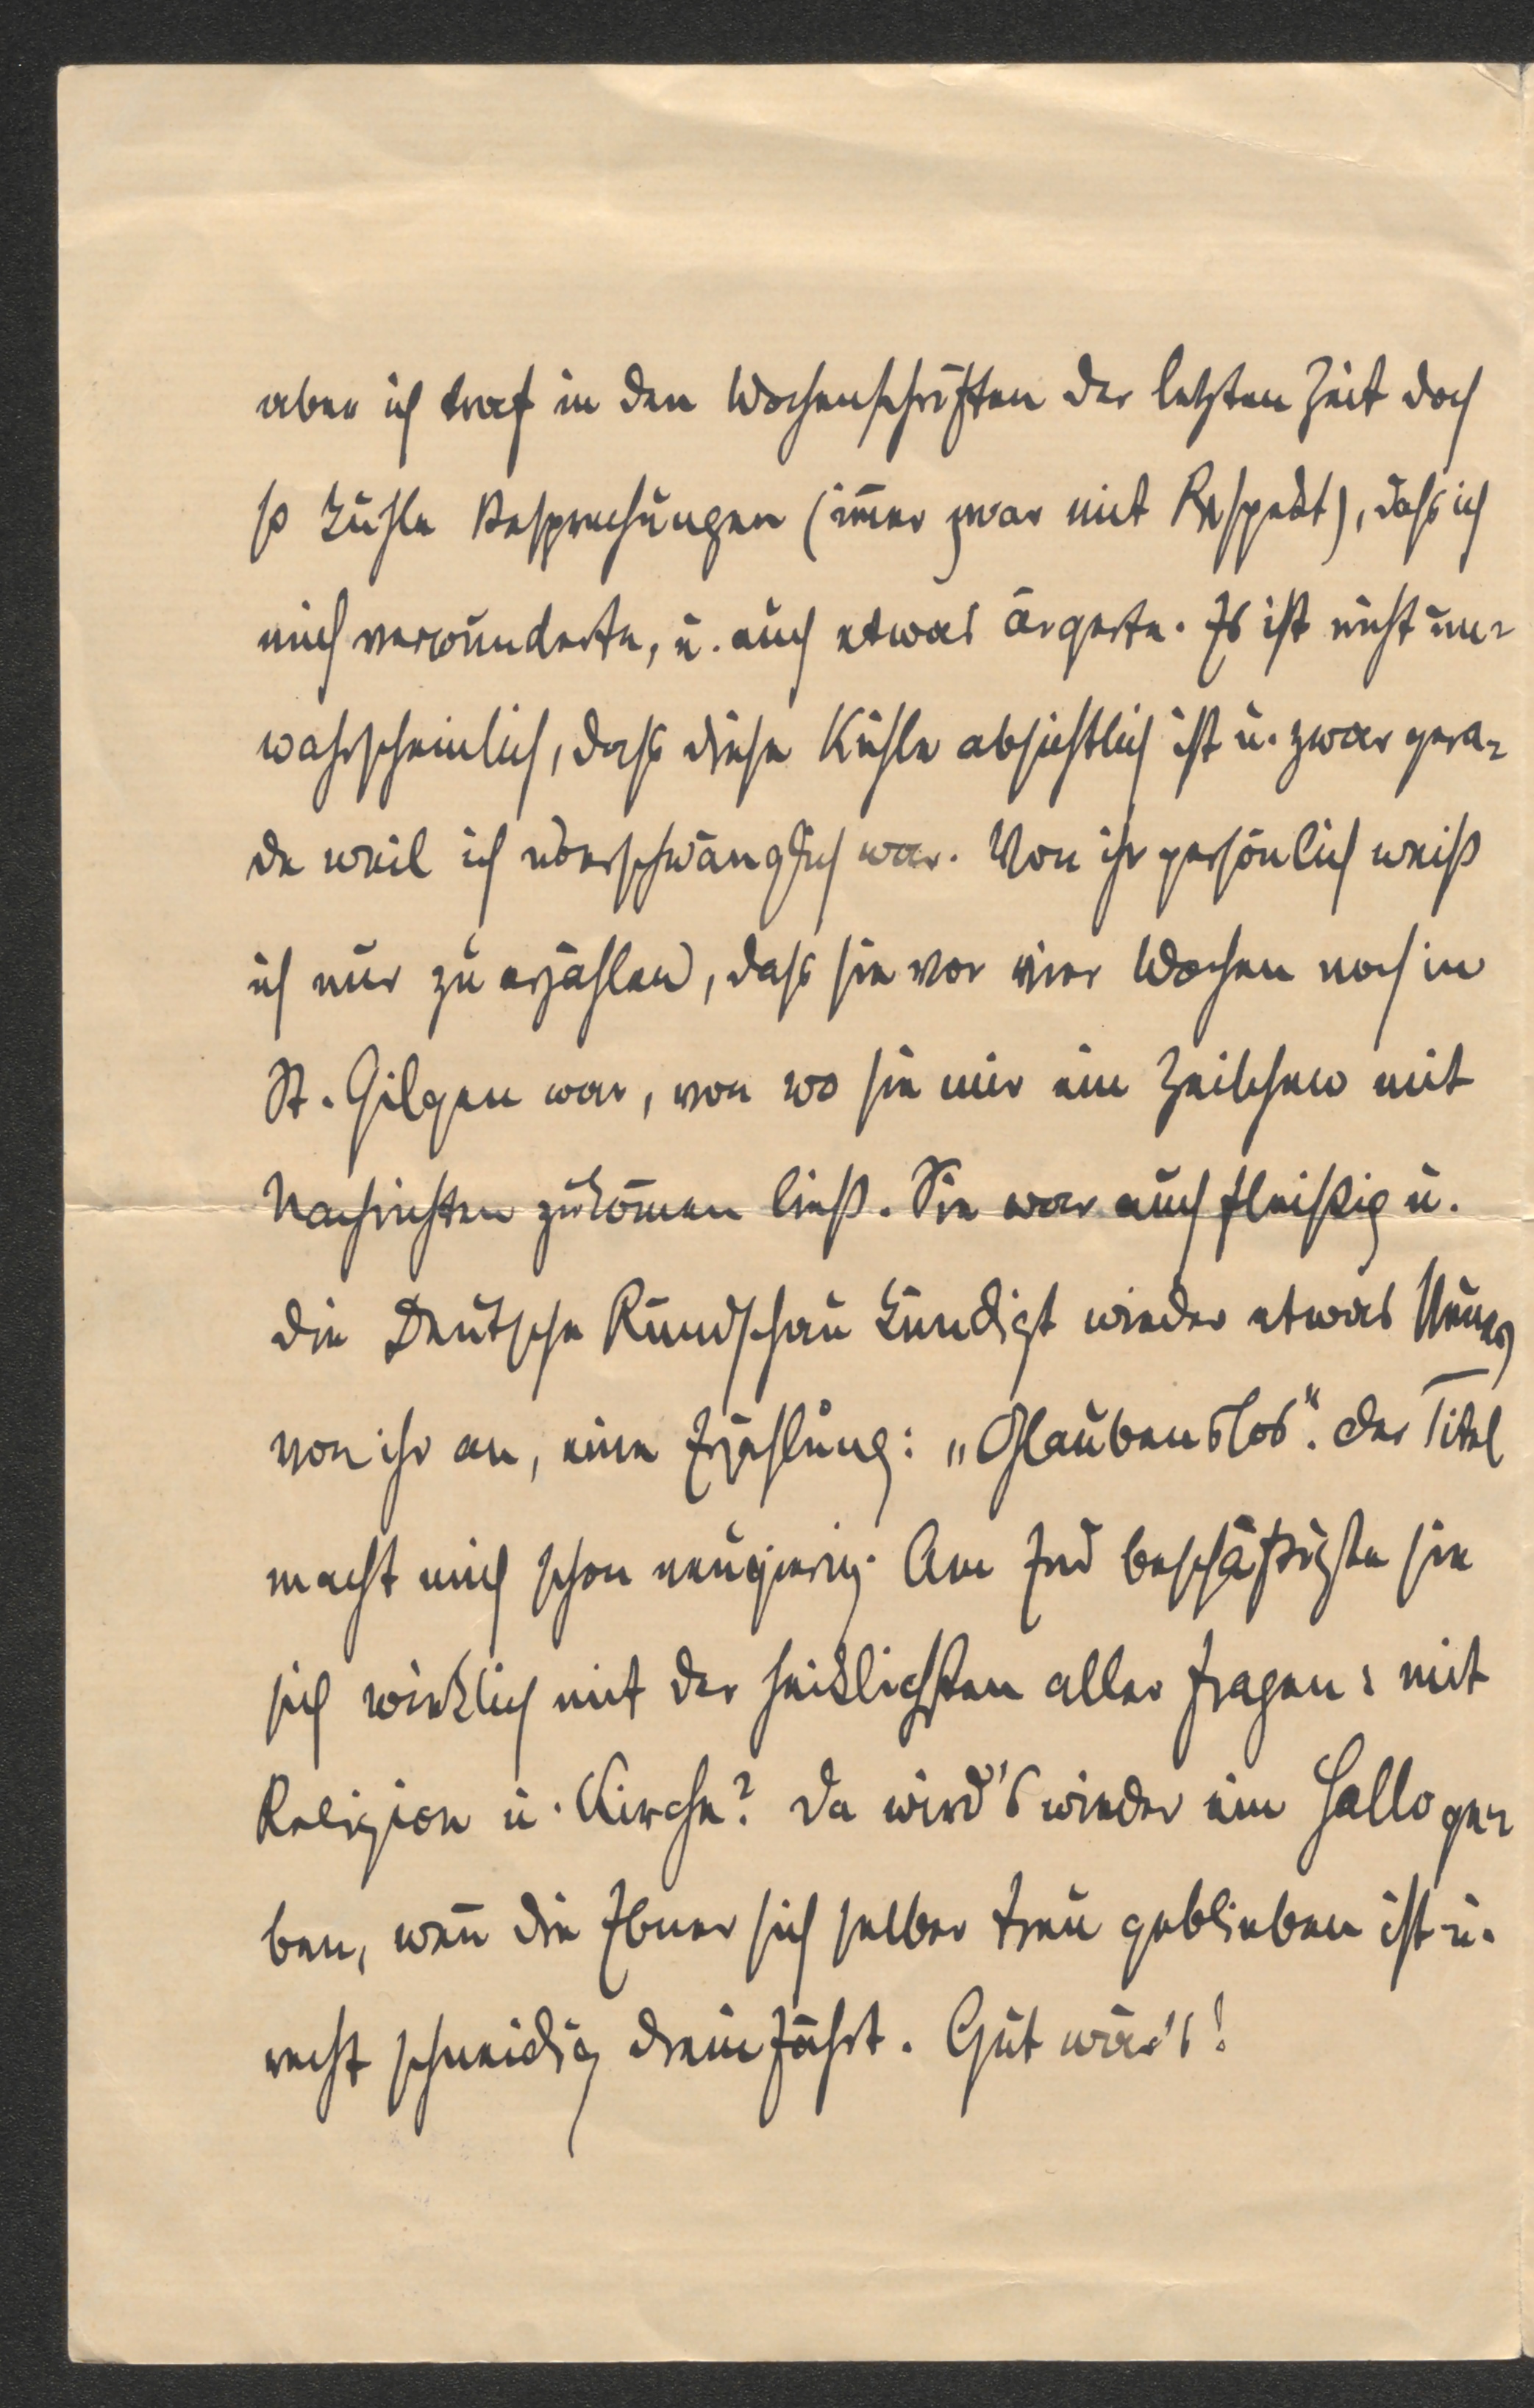 aber ich traf in den Wochenschriften der letzten Zeit doch
so kühle Besprechungen (im̅er zwar mit Respekt), dass ich
mich verwunderte, u. auch etwas ärgerte. Es ist nicht un-
wahrscheinlich, dass diese Kühle absichtlich ist u. zwar gera-
de weil ich überschwänglich war. Von ihr persönlich weiß
ich nur zu erzählen, dass sie vor vier Wochen noch in
St. Gilgen war, von wo sie mir ein Zeilchen mit
Nachrichten zukom̅en ließ. Sie war auch fleißig u.
die Deutsche Rundschau kündigt wieder etwas Neues
von ihr an, eine Erzählung: „Glaubenslos“. Der Titel
macht mich schon neugierig. Am End beschäftigte sie
sich wirklich mit der heiklichsten aller Fragen: mit
Religion u. Kirche? Da wird's wieder ein Hallo ge-
ben, wen̅ die Ebner sich selber treu geblieben ist u.
recht schneidig dreinfährt. Gut wär's!